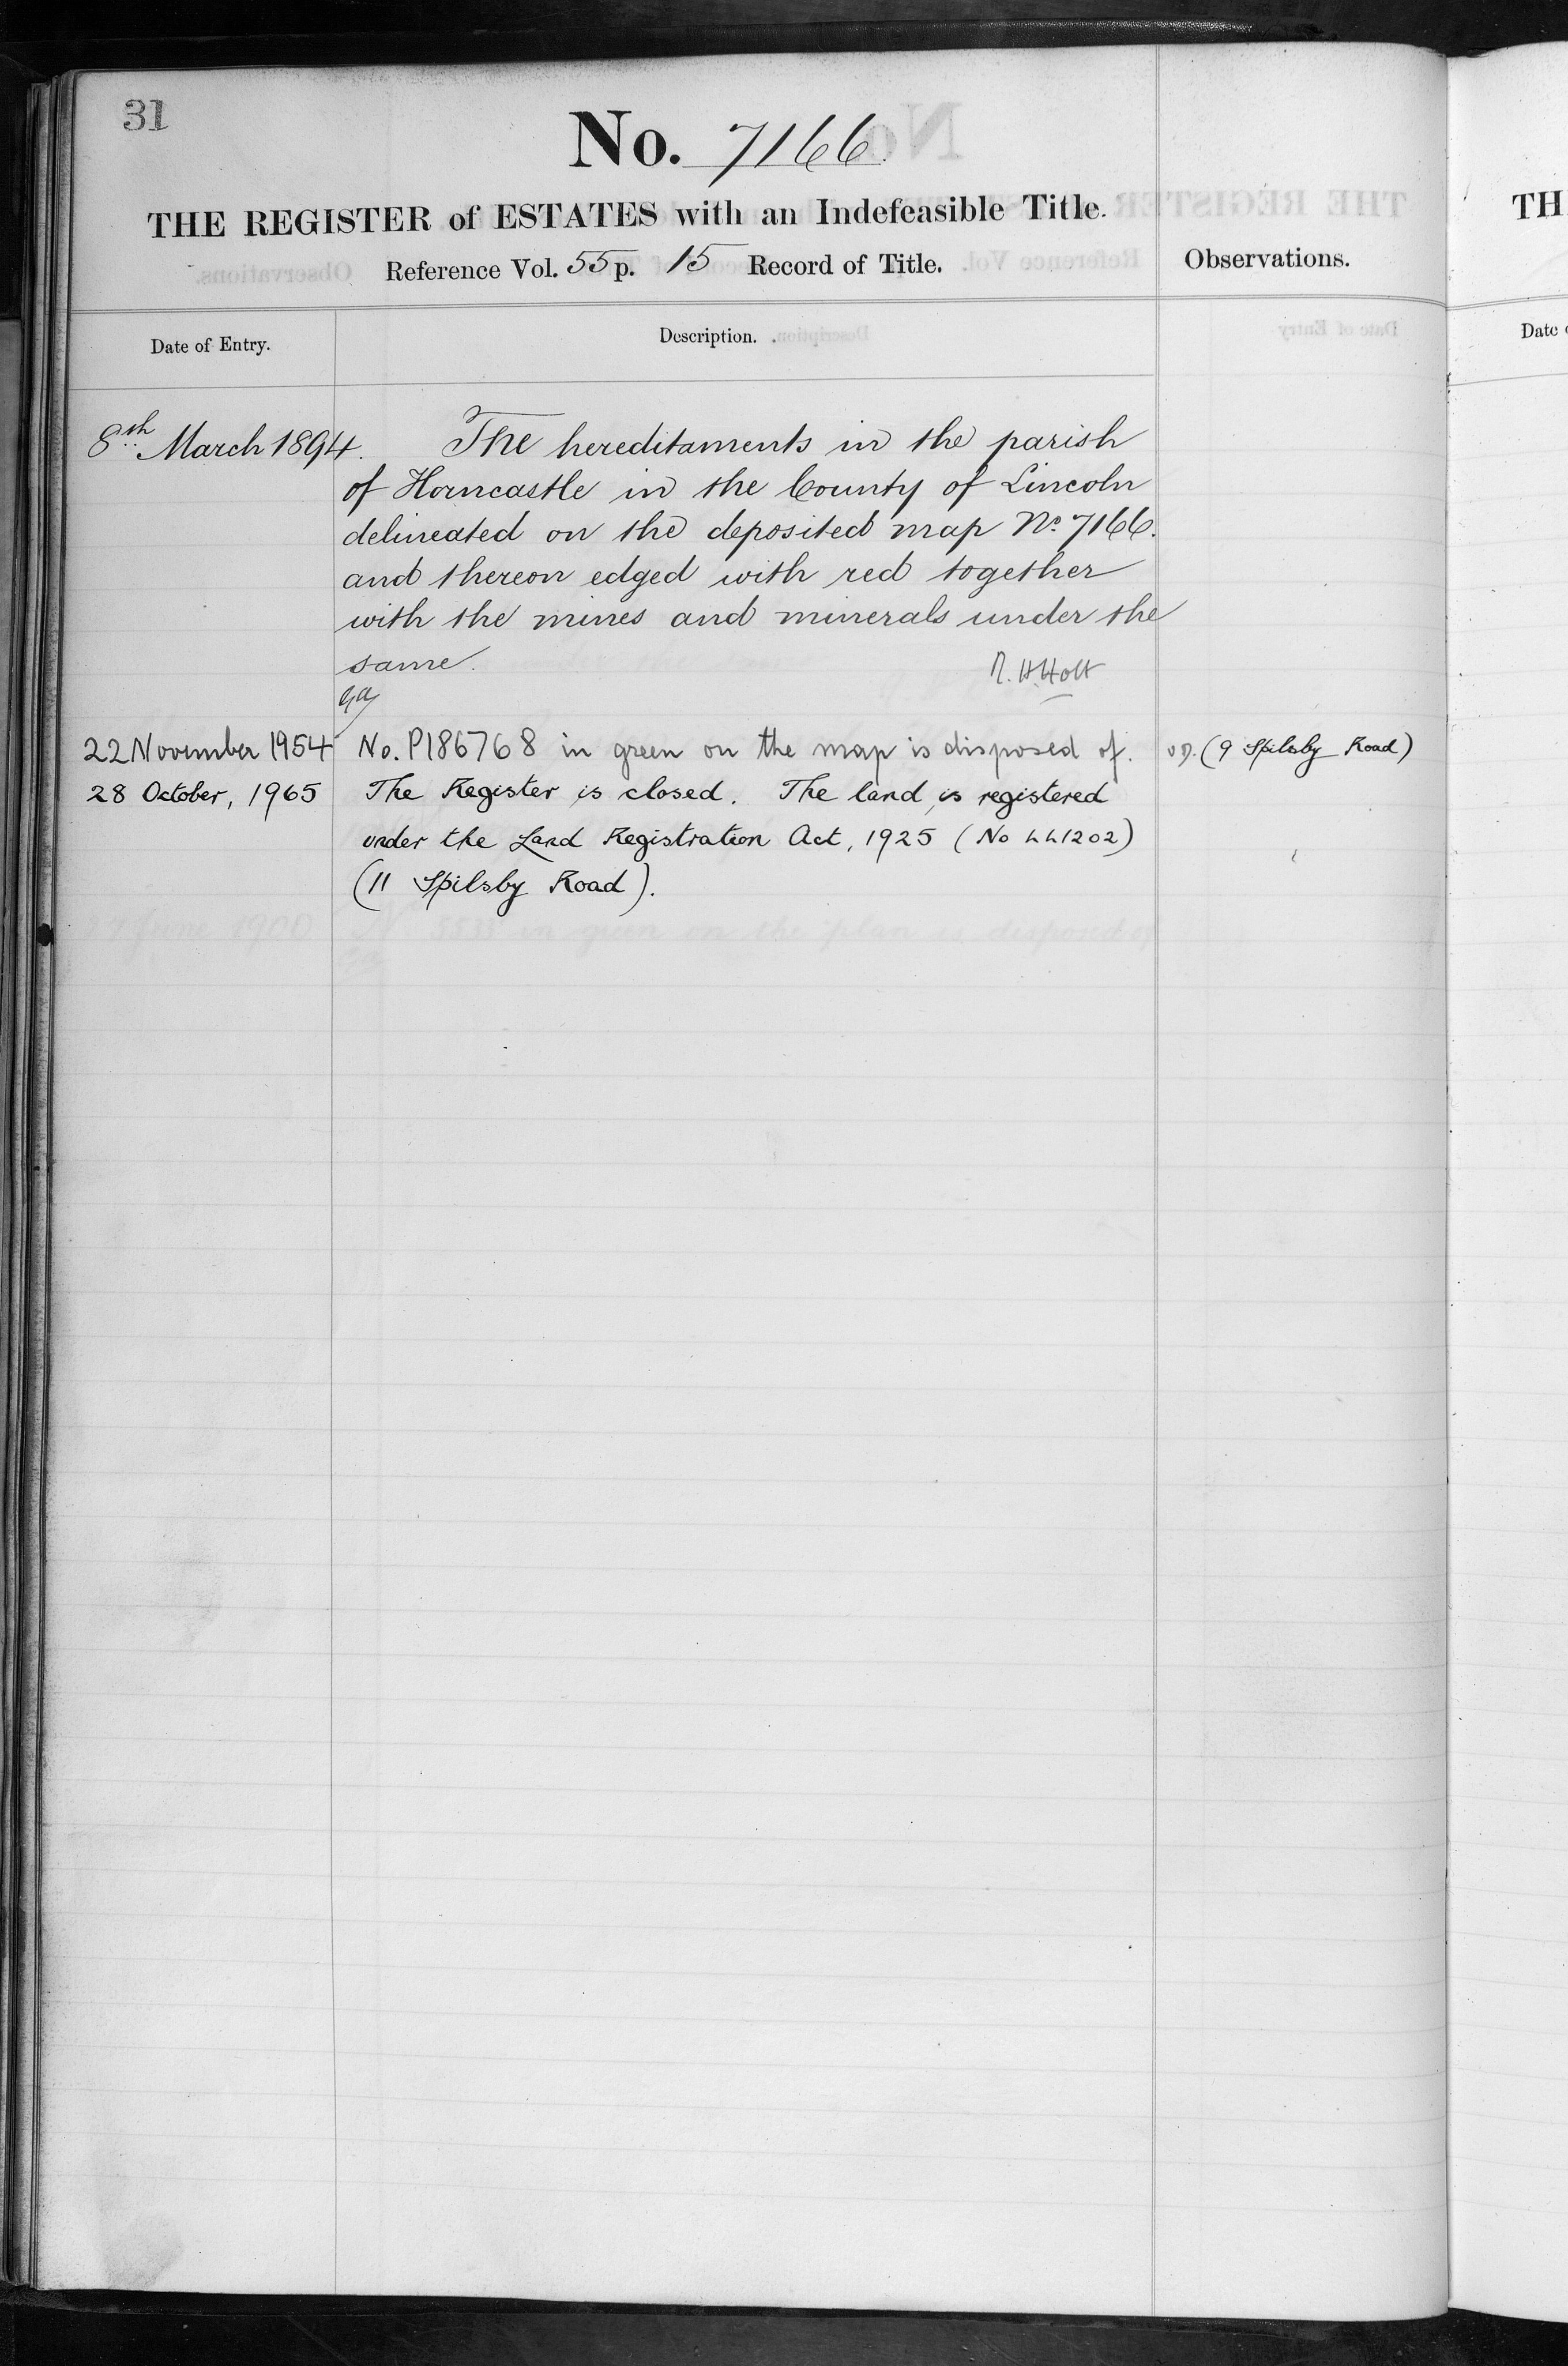 31
No. 7166
THE REGISTER of ESTATES with an Indefeasible Title.
Reference Vol. 55 p. 15 Record of Title.
Observations.
TH
Date of Entry.
Description.
Date
8th March 1894.
The hereditaments in the parish
of Horncastle in the County of Lincoln
delineated on the deposited map No. 7166.
and thereon edged with red together
with the mines and minerals under the
same.
R. H. Holt
22 November 1954 No. P186768 in green on the map is disposed of. (9 Spilsby Road)
28 October, 1965 The Register is closed. The land is registered
under the Land Registration Act, 1925 (No LL1202)
(11 Spilsby Road).
7 June 1900 in green on the plan is disposed of